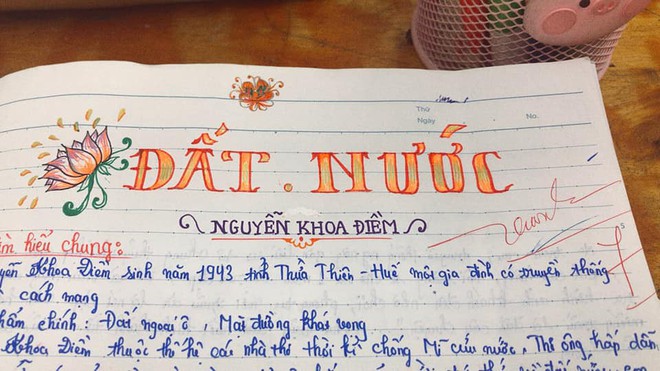 Thứ
Ngày No.
ĐẤT . NƯỚC
NGUYỄN KHOA ĐIỀM
hiểu chung:
Khoa Điềm sinh năm 1943 tỉnh Thừa Thiên - Huế một gia đình có truyền thống
cách mạng
chính: Đất ngoại ô, Mặt đường khát vọng
Khoa Điềm thuộc thế hệ các nhà thơ thời kì chống Mĩ cứu nước. Thơ ông hấp dẫn